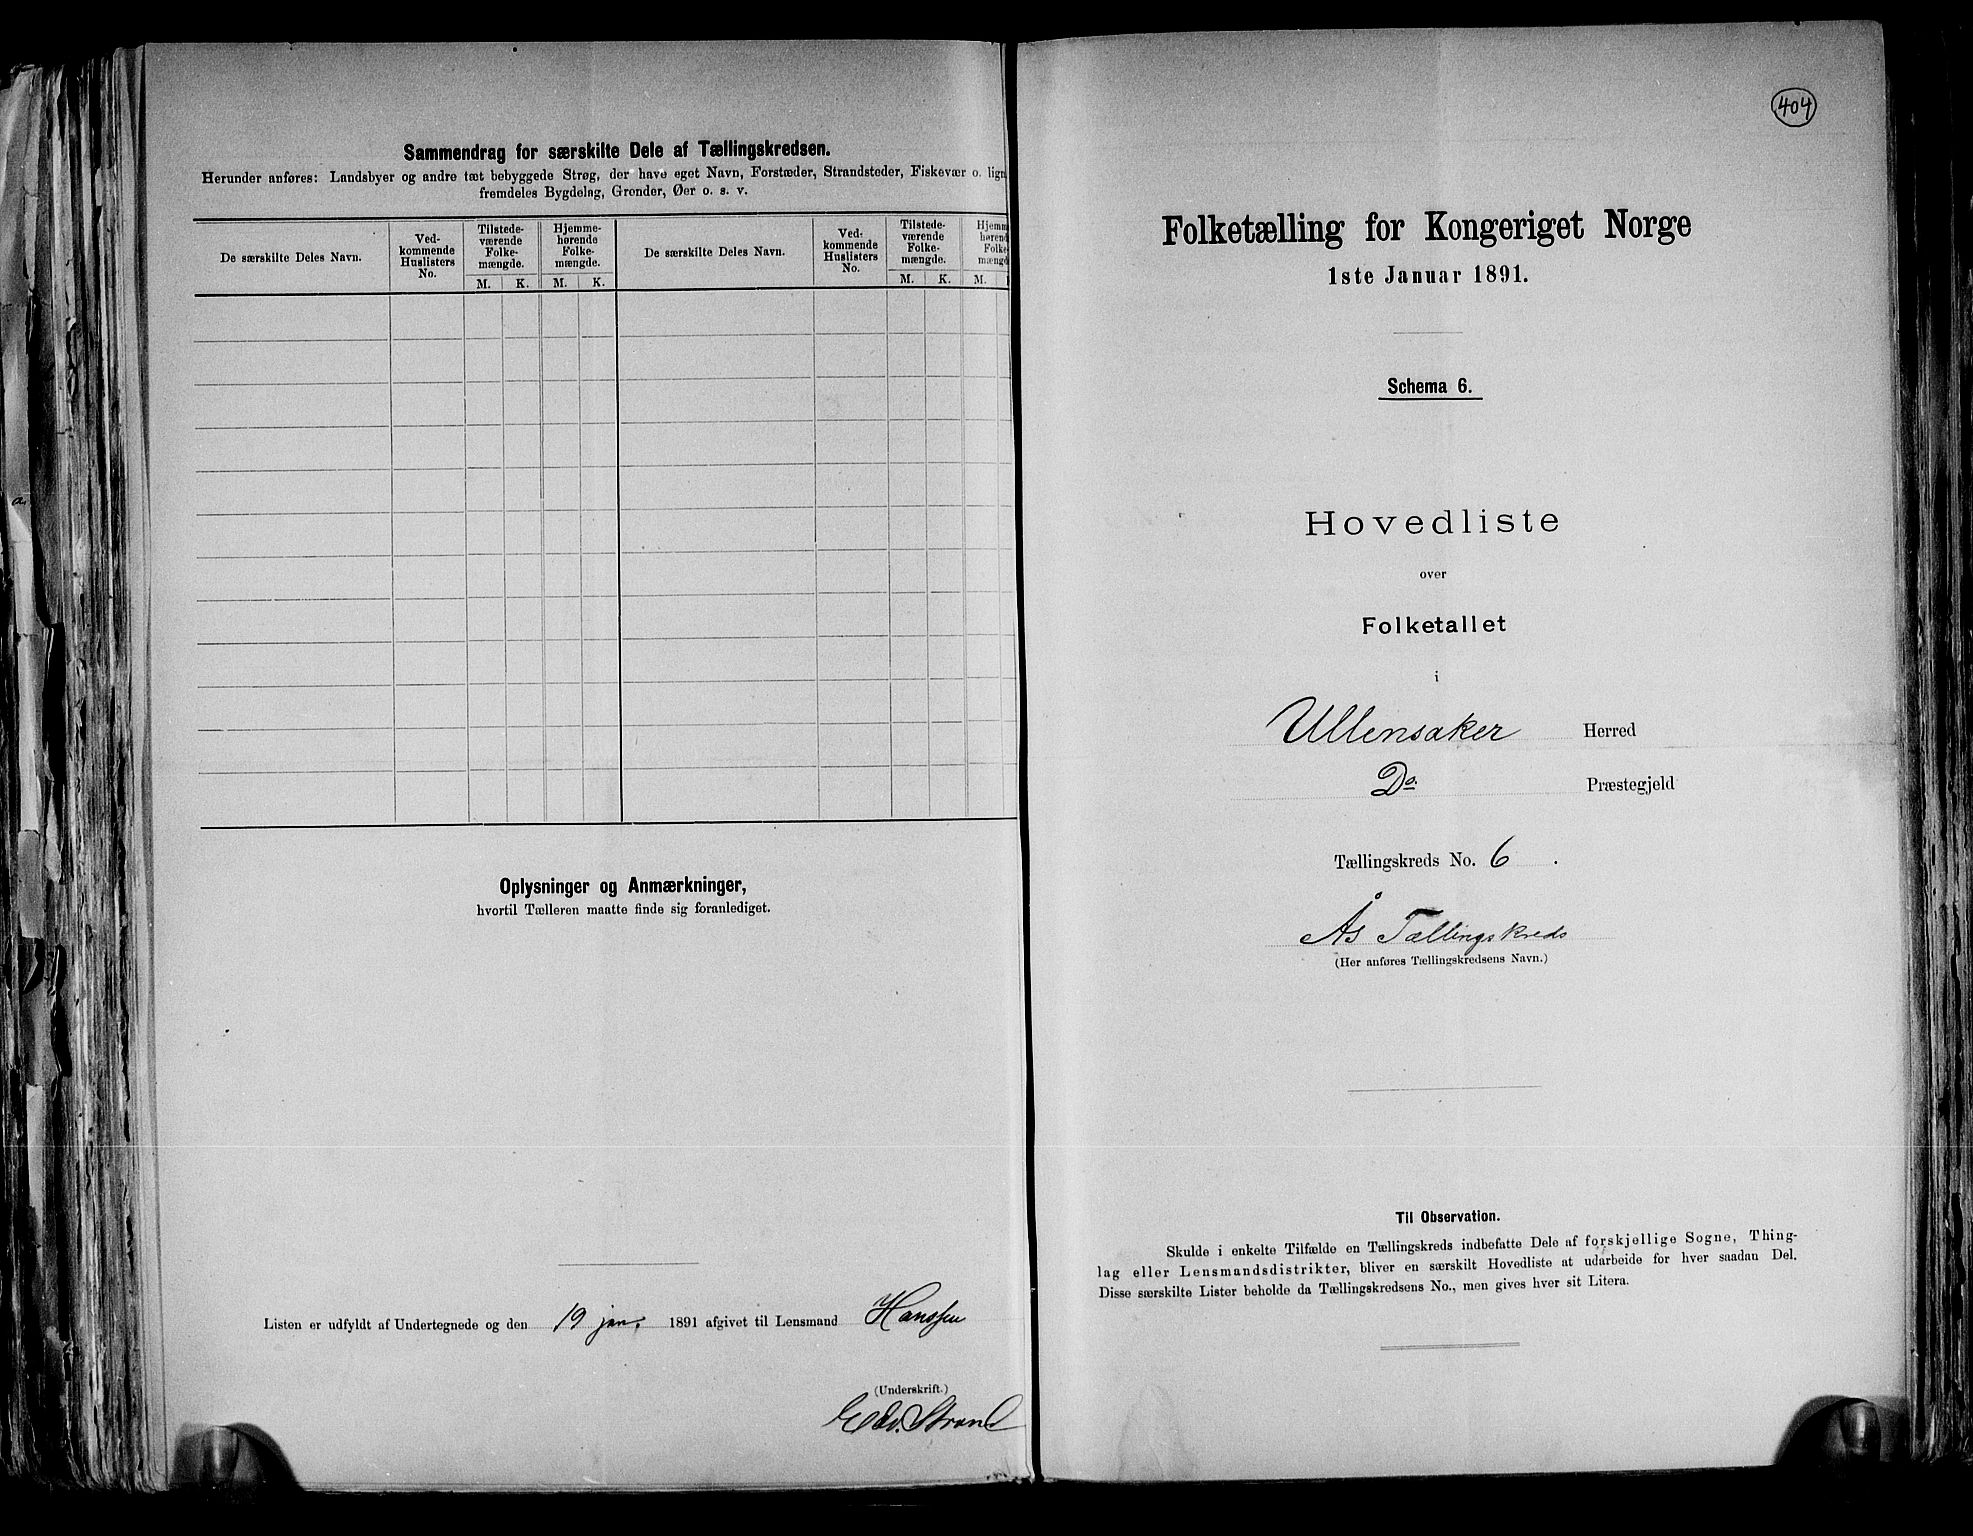 Sammendrag for særskilte Dele af Tællingskredsen.
Herunder anføres: Landsbyer og andre tæt bebyggede Strøg, der have eget Navn, Forstæder, Strandsteder, Fiskevær o. lign
fremdeles Bygdelag, Grender, Øer o. s. v.
De særskilte Deles Navn.
Ved-
kommende
Huslisters
No.
Tilstede-
værende
Folke-
mængde.
Hjemme-
hørende
Folke-
mængde.
De særskilte Deles Navn.
Ved-
kommende
Huslisters
No.
Tilstede-
værende
Folke-
mængde.
Hjemm
høren
Folke
mængd
M. K. M. K. M. K. M.
Oplysninger og Anmærkninger,
hvortil Tælleren maatte finde sig foranlediget.
Listen er udfyldt af Undertegnede og den 19 jan. 1891 afgivet til Lensmand Hanssen
(Underskrift.)
Edv. Strand
404
Folketælling for Kongeriget Norge
1ste Januar 1891.
Schema 6.
Hovedliste
over
Folketallet
i
Ullensaker Herred
Do. Præstegjeld
Tællingskreds No. 6 .
Ås Tællingskreds
(Her anføres Tællingskredsens Navn.)
Til Observation.
Skulde i enkelte Tilfælde en Tællingskreds indbefatte Dele af forskjellige Sogne, Thing-
lag eller Lensmandsdistrikter, bliver en særskilt Hovedliste at udarbeide for hver saadan Del.
Disse særskilte Lister beholde da Tællingskredsens No., men gives hver sit Litera.